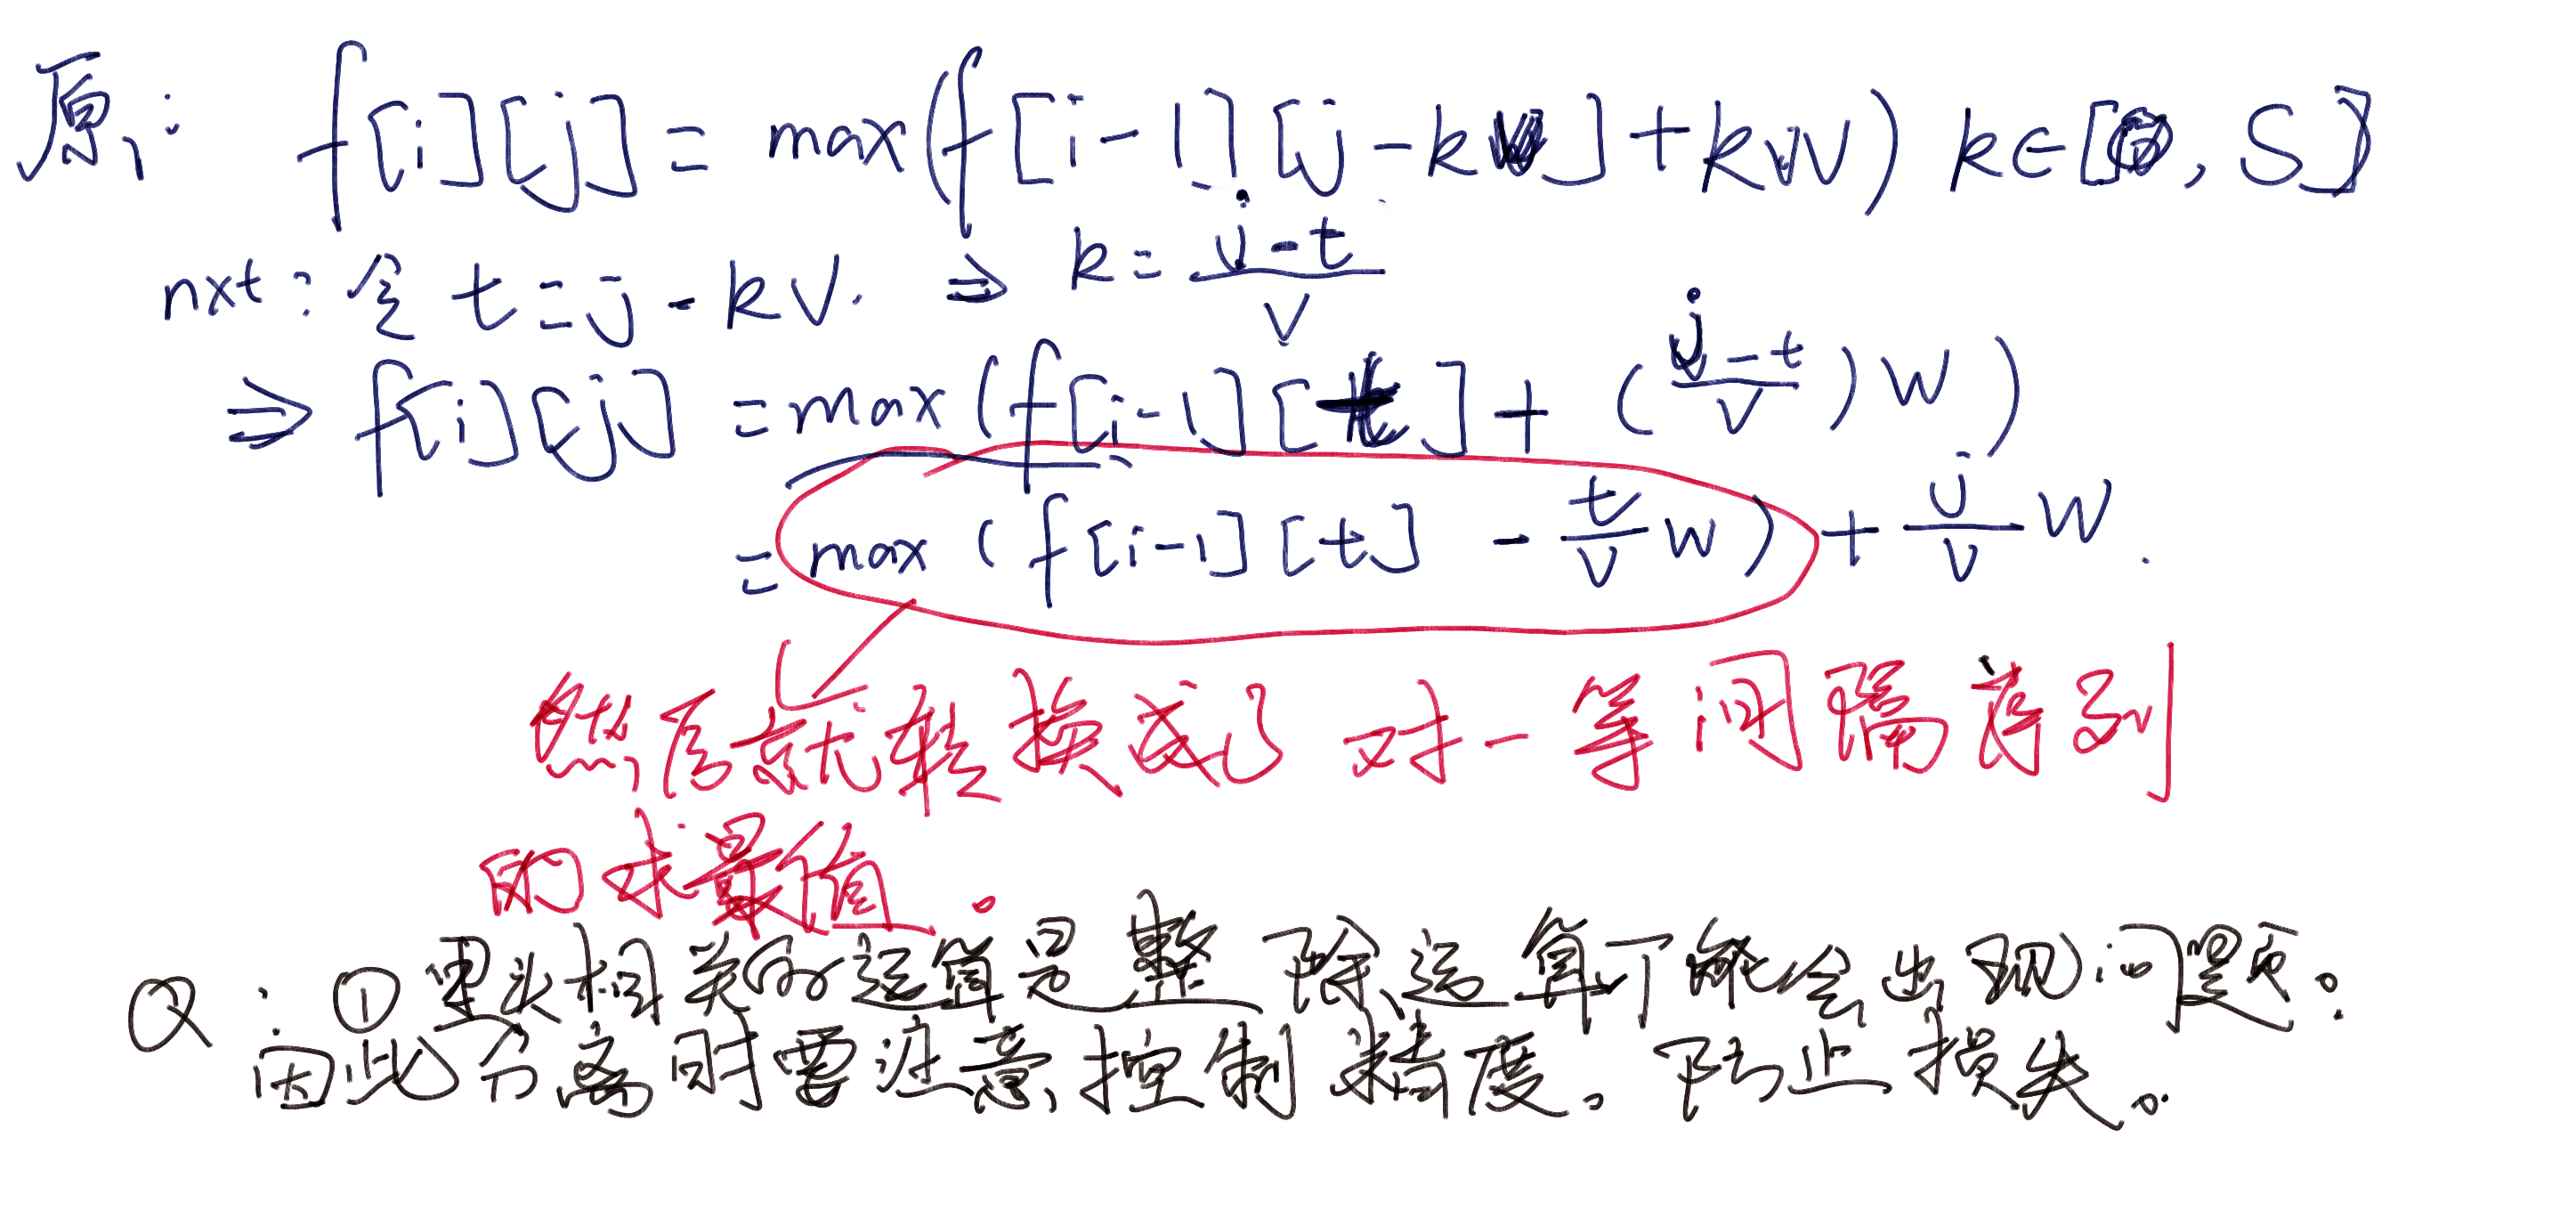 原: f[i][j] = max(f[i-1][j-kv]+kw) k∈[0,S]
nxt: 令 t=j-kv. ⇒ k=\frac{j-t}{v}
⇒ f[i][j] =max(f[i-1][t]+(\frac{j-t}{v})w)
=max(f[i-1][t] - \frac{t}{v}w)+\frac{j}{v}w.
然后就转换成了对一等间隔序列
的求最值。
Q: ①里头相关的运算是整除、运算可能会出现问题。
因此分离时要注意控制精度。防止损失。